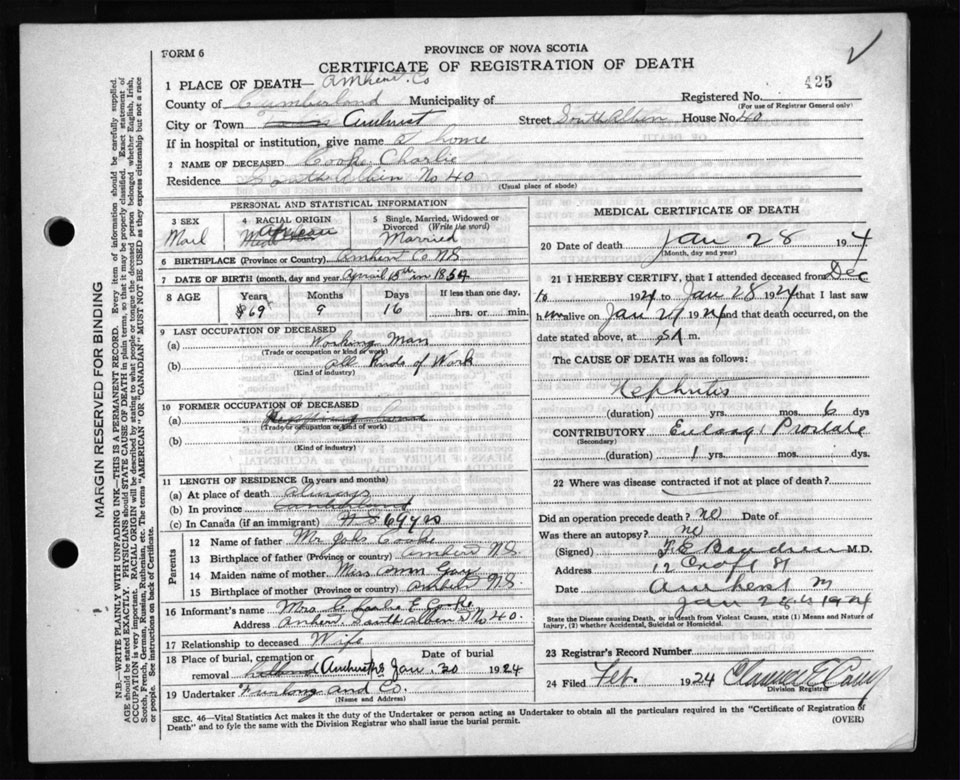 FORM 6
PROVINCE OF NOVA SCOTIA
CERTIFICATE OF REGISTRATION OF DEATH
425
1 PLACE OF DEATH— Amherst Co
County of Cumberland Municipality of Registered No.
(For use of Registrar General only)
City or Town Amherst Street South Albion House No. 40
If in hospital or institution, give name at home
2 NAME OF DECEASED Cooke Charlie
Residence South Albion No 40
(Usual place of abode)
PERSONAL AND STATISTICAL INFORMATION
3 SEX
Mail
4 RACIAL ORIGIN
African
5 Single, Married, Widowed or Divorced (Write the word)
Married
6 BIRTHPLACE (Province or Country) Amherst Co N.S.
7 DATE OF BIRTH (month, day and year) April 13th in 1854
8 AGE
Years 69
Months 9
Days 16
If less than one day,
hrs. or min.
9 LAST OCCUPATION OF DECEASED
(a) Working Man
(Trade or occupation or kind of work)
(b) All Kinds of Work
(Kind of industry)
10 FORMER OCCUPATION OF DECEASED
(a)
(Trade or occupation or kind of work)
(b)
(Kind of industry)
11 LENGTH OF RESIDENCE (In years and months)
(a) At place of death always
(b) In province
(c) In Canada (if an immigrant) 69 yrs
Parents
12 Name of father Mr Cooke
13 Birthplace of father (Province or country) Amherst N.S.
14 Maiden name of mother Miss Ann Gay
15 Birthplace of mother (Province or country) Amherst N.S.
16 Informant's name Mrs Charlie E Cooke
Address Amherst South Albion St No 40.
17 Relationship to deceased Wife
18 Place of burial, cremation or removal Amherst Date of burial Jan. 30 1924
19 Undertaker Furlong and Co.
(Name and Address)
MEDICAL CERTIFICATE OF DEATH
20 Date of death Jan 28 1924
(Month, day and year)
21 I HEREBY CERTIFY, that I attended deceased from Dec
1924 to Jan 28 1924 that I last saw
him alive on Jan 1924 and that death occurred, on
date stated above, at 5 A m.
The CAUSE OF DEATH was as follows:
Nephritis
(duration) yrs. mos. 6 dys
CONTRIBUTORY Enlarg Prostate
(Secondary)
(duration) 1 yrs. mos. dys.
22 Where was disease contracted if not at place of death?
Did an operation precede death? no Date of
Was there an autopsy? no
(Signed) M.D.
Address 12 Croft St
Date Amherst
Jan 28th 1924
State the Disease causing Death, or in death from Violent Causes, state (1) Means and Nature of Injury, (2) whether Accidental, Suicidal or Homicidal.
23 Registrar's Record Number
24 Filed Feb. 1924
Division Registrar
SEC. 46—Vital Statistics Act makes it the duty of the Undertaker or person acting as Undertaker to obtain all the particulars required in the "Certificate of Registration of
Death" and to fyle the same with the Division Registrar who shall issue the burial permit.
(OVER)
MARGIN RESERVED FOR BINDING
N.B.—WRITE PLAINLY WITH UNFADING INK—THIS IS A PERMANENT RECORD. Every item of information should be carefully supplied.
AGE should be stated EXACTLY. PHYSICIANS should STATE CAUSE OF DEATH in plain terms, so that it may be properly classified. Exact statement of
OCCUPATION is very important. RACIAL ORIGIN will be described by stating to what people or tongue the deceased person belonged whether English, Irish,
Scotch, French, German, Russian, Ruthenian, etc. The terms "AMERICAN" OR "CANADIAN" MUST NOT BE USED as they express citizenship but not a race
or people. See instructions on back of Certificate.